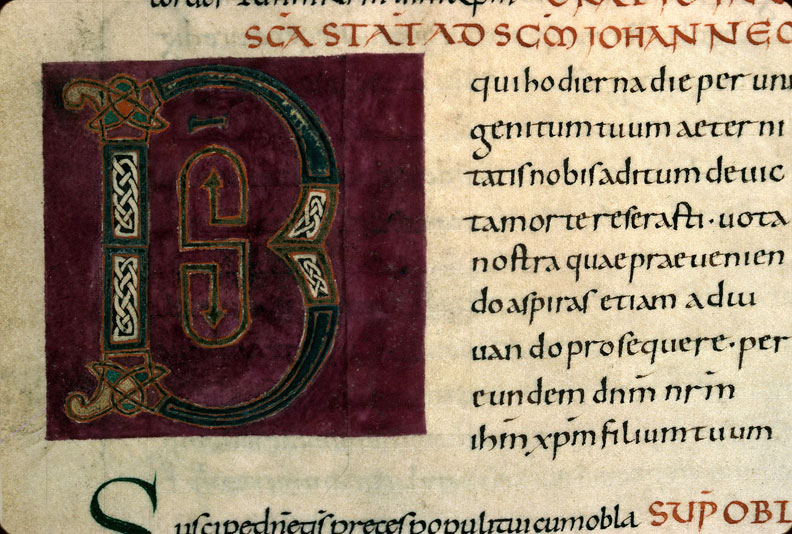 ORATIO IN
SC̄A STAT̄ AD SC̄M IOHANNE
DS̄
qui hodierna die per uni
genitum tuum aeterni
tatis nobis aditum deuic
ta morte reserasti · uota
nostra quae praeuenien
do aspiras etiam adiu
uando prosequere · per
eundem dn̄m nr̄m
ih̄m xp̄m filium tuum
Suscipe dn̄e tīs preces populi tui cum obla SUP̄ OBL